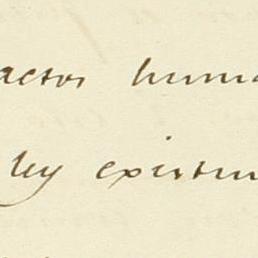 actos huma
ley existen